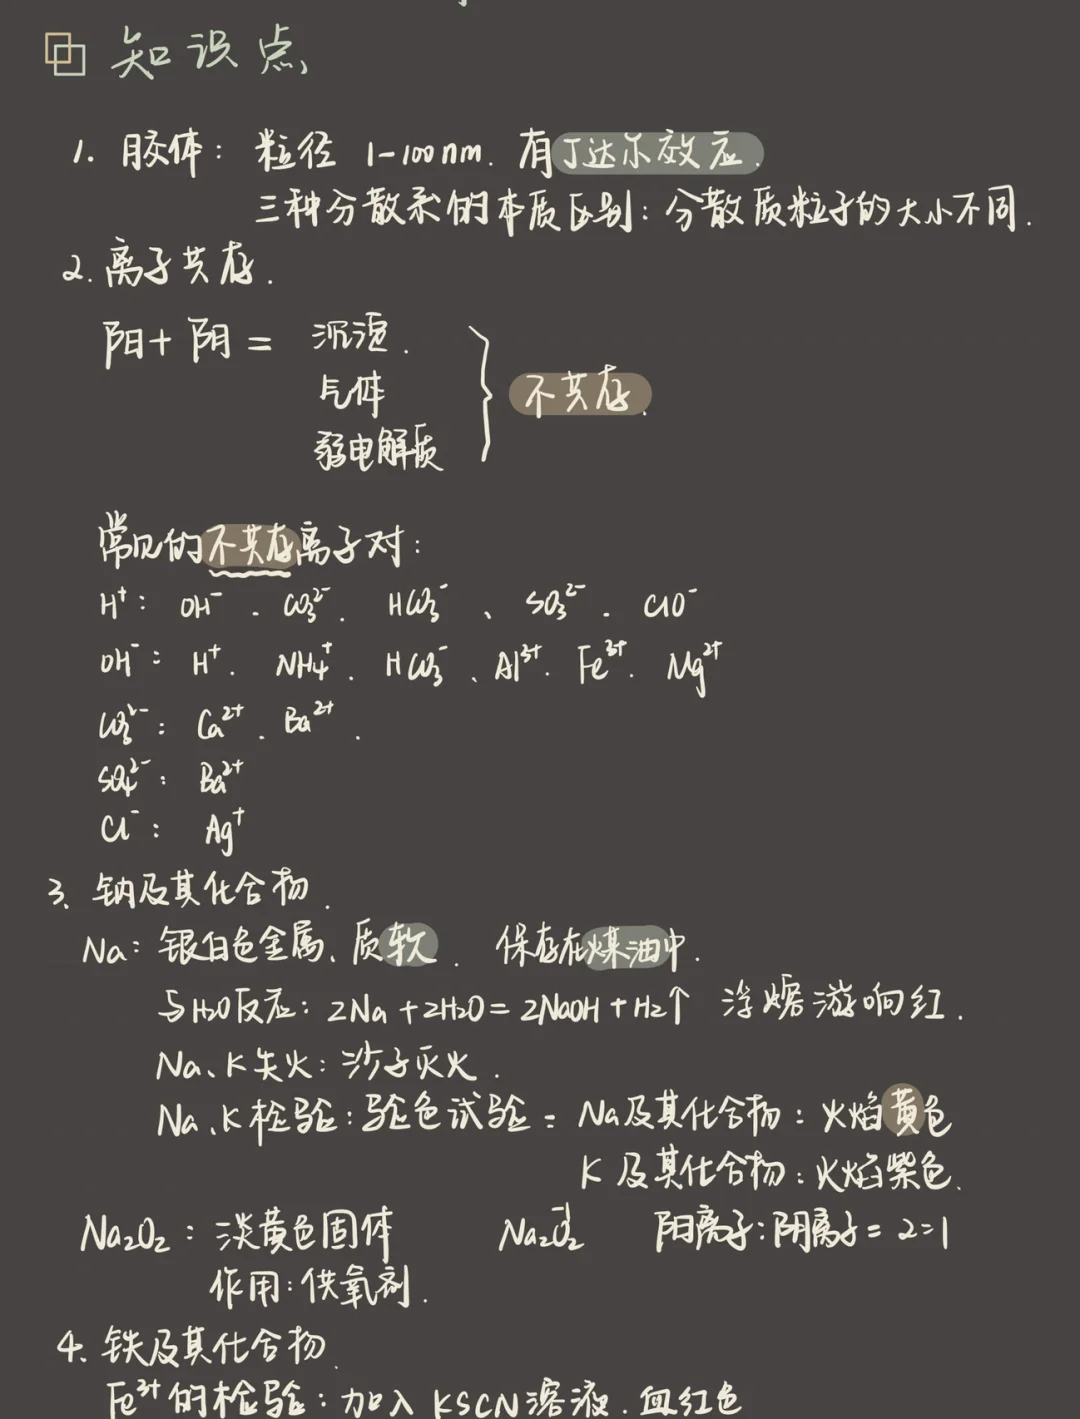 知识点
1. 胶体: 粒径 1-100nm. 有丁达尔效应.
三种分散系的本质区别: 分散质粒子的大小不同.
2. 离子共存.
阳+阴= 沉淀.
气体
弱电解质
不共存.
常见的不共存离子对:
H⁺: OH⁻. CO₃²⁻. HCO₃⁻、SO₃²⁻. ClO⁻
OH⁻: H⁺. NH₄⁺. HCO₃⁻、Al³⁺. Fe³⁺. Mg²⁺
CO₃²⁻: Ca²⁺. Ba²⁺.
SO₄²⁻: Ba²⁺
Cl⁻: Ag⁺
3、钠及其化合物.
Na: 银白色金属、质软. 保存在煤油中.
与H₂O反应: 2Na+2H₂O=2NaOH+H₂↑ 浮熔游响红.
Na、K失火: 沙子灭火.
Na、K检验: 验色试验= Na及其化合物: 火焰黄色
K及其化合物: 火焰紫色.
Na₂O₂: 淡黄色固体 Na₂O₂⁻¹ 阳离子:阴离子=2:1
作用: 供氧剂.
4. 铁及其化合物.
Fe³⁺的检验: 加入KSCN溶液. 血红色